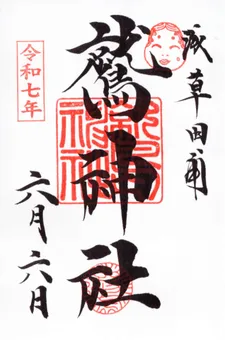 浅草田甫
鷲神社
令和七年
六月六日